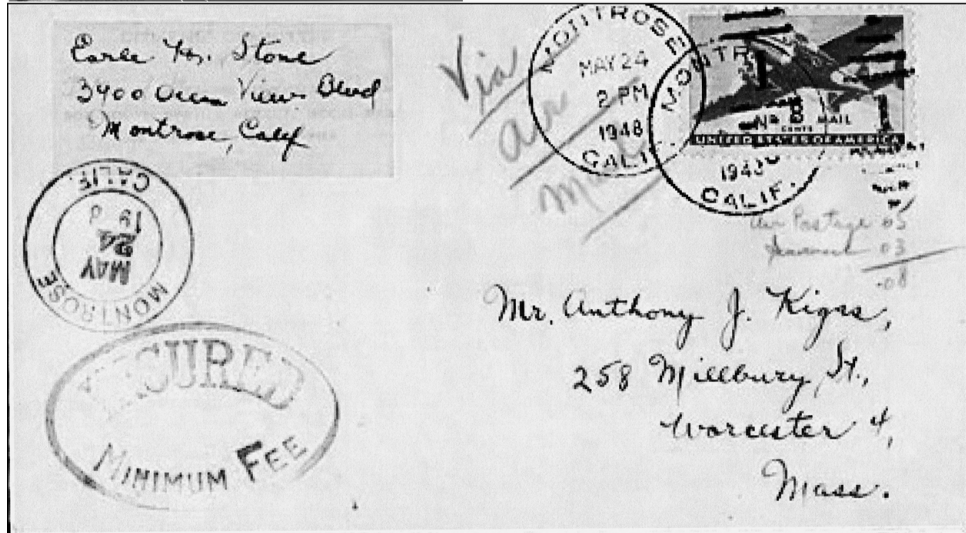 Earle M. Stone
3400 Ocean View Blvd
Montrose, Calif
Via
Air
Mail
MONTROSE
MAY 24
2 PM
1948
CALIF.
MONTR
1948
CALIF.
8
CENTS
AIR MAIL
UNITED STATES OF AMERICA
Air Postage 05
Insurance 03
.08
MONTROSE
MAY
24
19
CALIF.
INSURED
MINIMUM FEE
Mr. Anthony J. Kigas,
258 Millbury St.,
Worcester 4,
Mass.